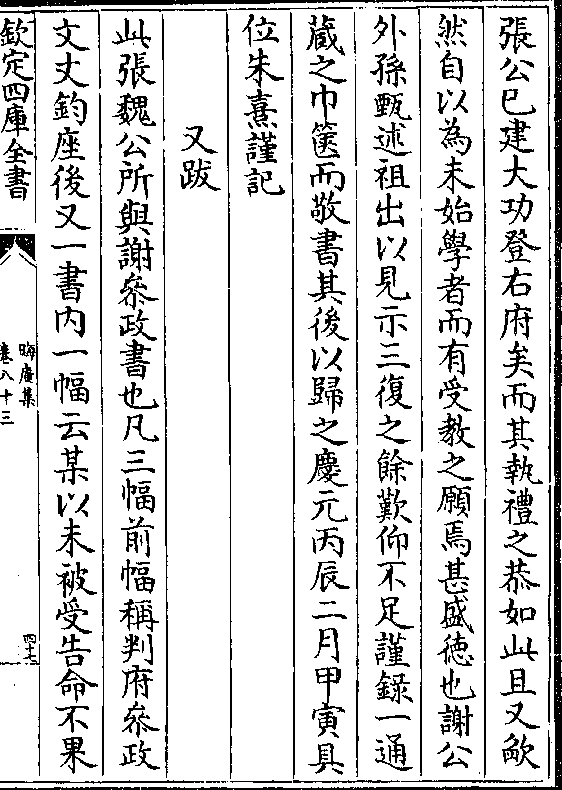 張公已建大功登右府矣而其執禮之恭如此且又歉
然自以為未始學者而有受教之願焉甚盛徳也謝公
外孫甄述祖出以見示三復之餘歎仰不足謹錄一通
蔵之巾篋而敬書其後以歸之慶元丙辰二月甲寅具
位朱熹謹記
又跋
此張魏公所與謝叅政書也凡三幅前幅稱判府叅政
文丈鈞座後又一書内一幅云某以未被受告命不果
欽定四庫全書
晦庵集
卷八十三
四十七